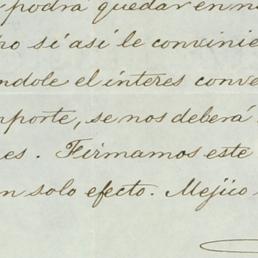 podrá quedar en
sí así le convinie
ndole el ínteres conve
mporte, se nos deberá
es. Firmamos este
n solo efecto. Mejico